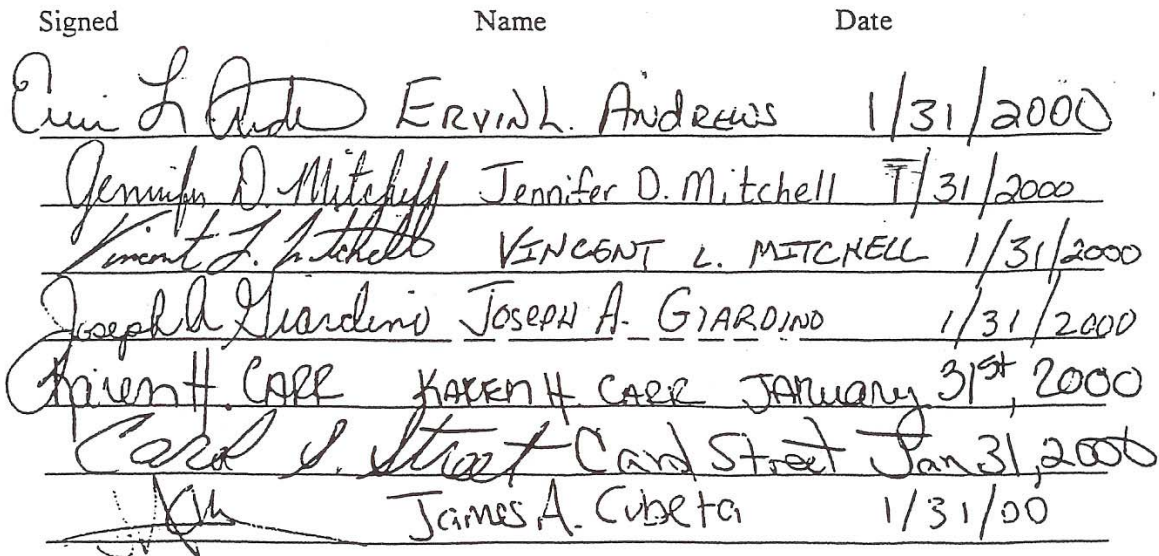 Signed Name Date
Ervin L. Andrews ERVIN L. ANDREWS 1/31/2000
Jennifer D. Mitchell Jennifer D. Mitchell 1/31/2000
Vincent L. Mitchell VINCENT L. MITCHELL 1/31/2000
Joseph A Giardino JOSEPH A. GIARDINO 1/31/2000
Karen H. CARR KAREN H. CARR JANUARY 31st, 2000
Carol S. Street Carol Street Jan 31, 2000
James A. Cubeta 1/31/00